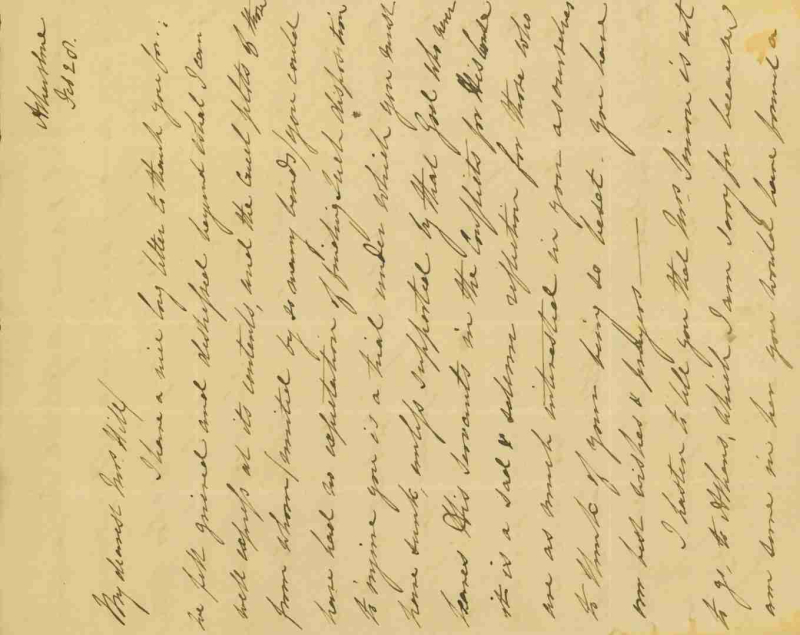 Atherstone
Feb 20.
My dearest Mrs Hill/
I have a nice long letter to thank you for;
we felt grieved and distressed beyond what I can
well express at its contents, and the cruel plots of those
from whom /united by so many bonds/ you could
have had no expectation of finding such disposition
to injure you is a trial under which you must
have sunk, unless supported by that God who never
leaves His servants in the conflicts for His sake
it is a sad & solemn reflection for those who
are as much interested in you as ourselves
to think of your being so beset. You have
our best wishes & prayers —
I hasten to tell you that Mrs. Simson is not
to go to Athens, which I am sorry for because I
am sure in her you would have found a